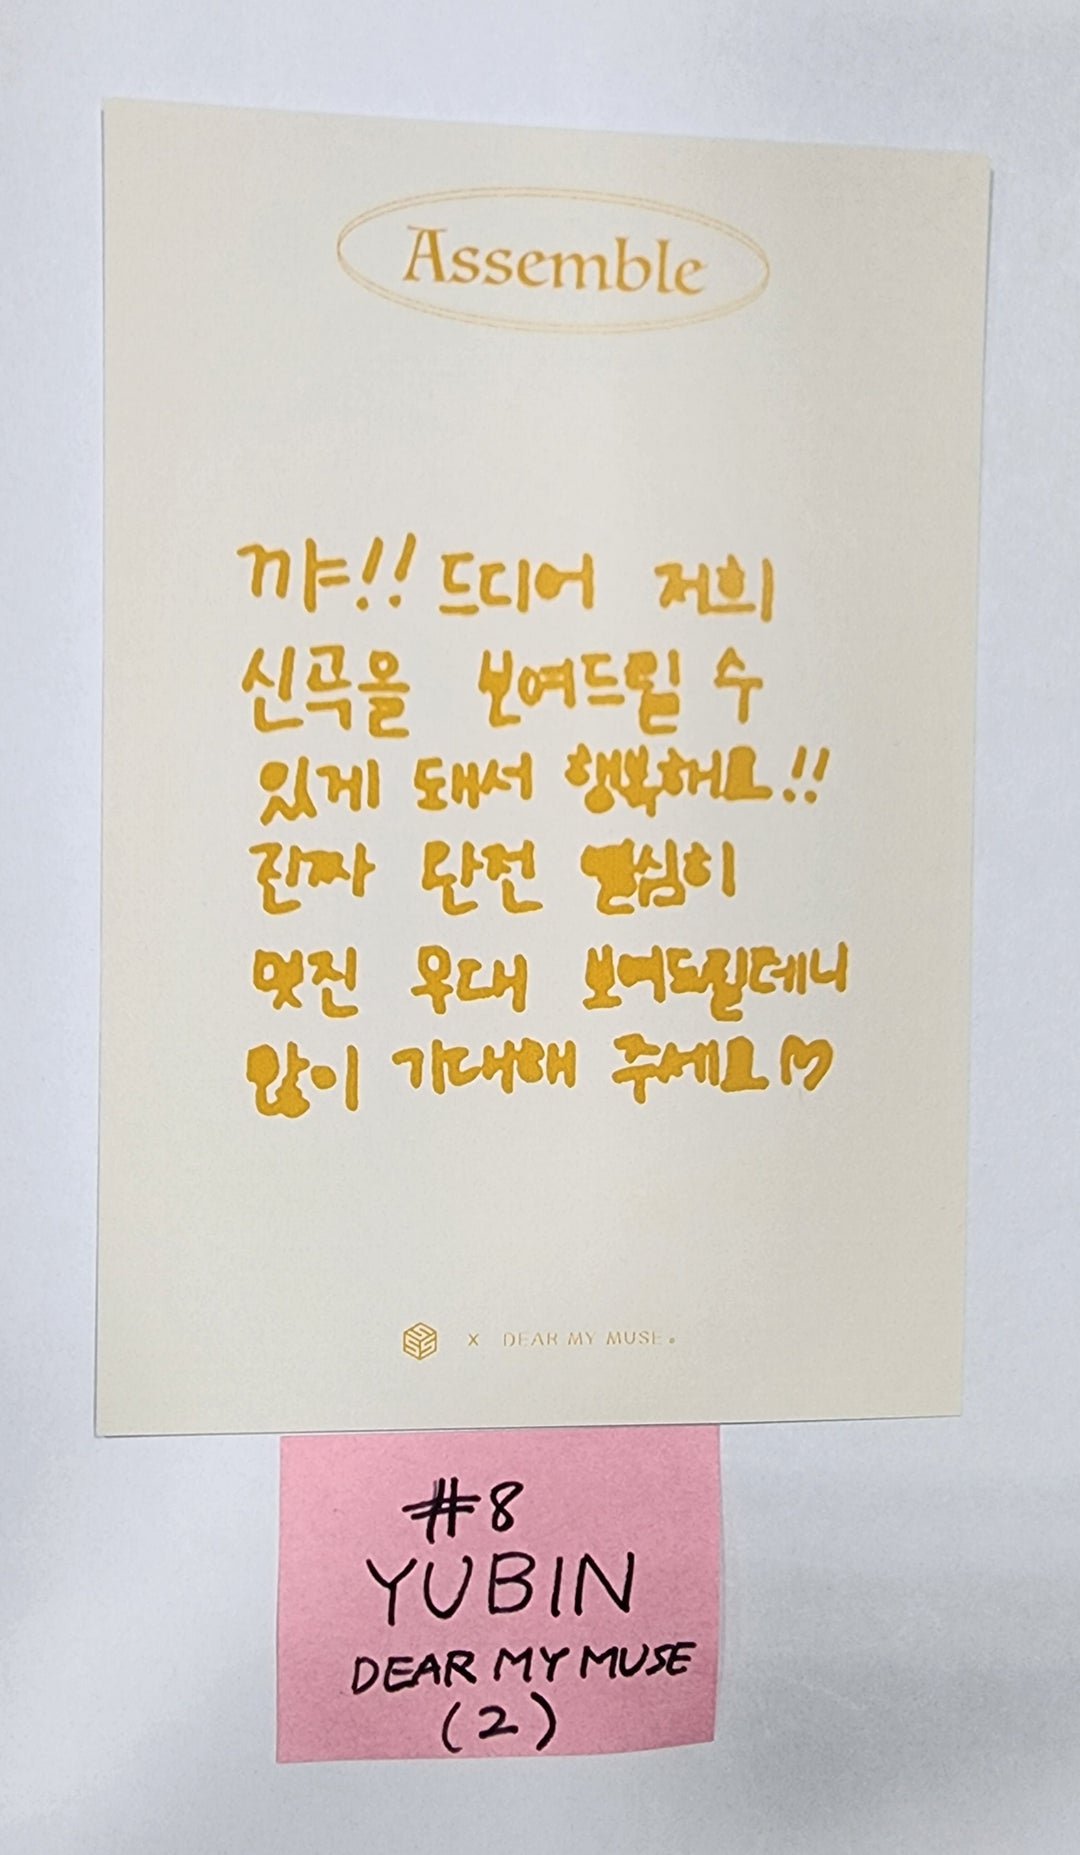 Assemble
꺄!! 드디어 저희
신곡을 보여드릴 수
있게 돼서 행복해요!!
진짜 완전 열심히
멋진 무대 보여드릴테니
많이 기대해 주세요♡
SSS x DEAR MY MUSE。
#8
YUBIN
DEAR MY MUSE
(2)